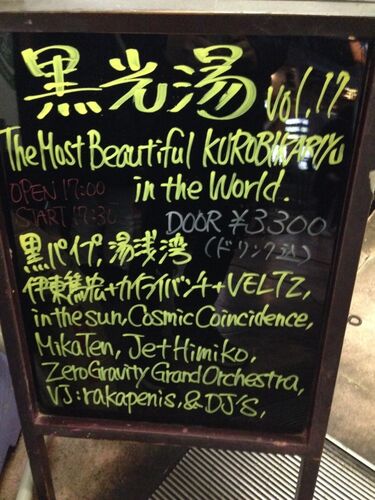 黒光湯 vol.17
The Most Beautiful KUROBIKARIYU
in the World.
OPEN 17:00
START 17:30
DOOR ¥3300
(ドリンク込)
黒パイプ, 湯浅湾
伊東篤宏+カイライバンチ+VELTZ,
in the sun, Cosmic Coincidence,
MikaTen, Jet Himiko,
Zero Gravity Grand Orchestra,
VJ: rakapenis, & DJ'S,